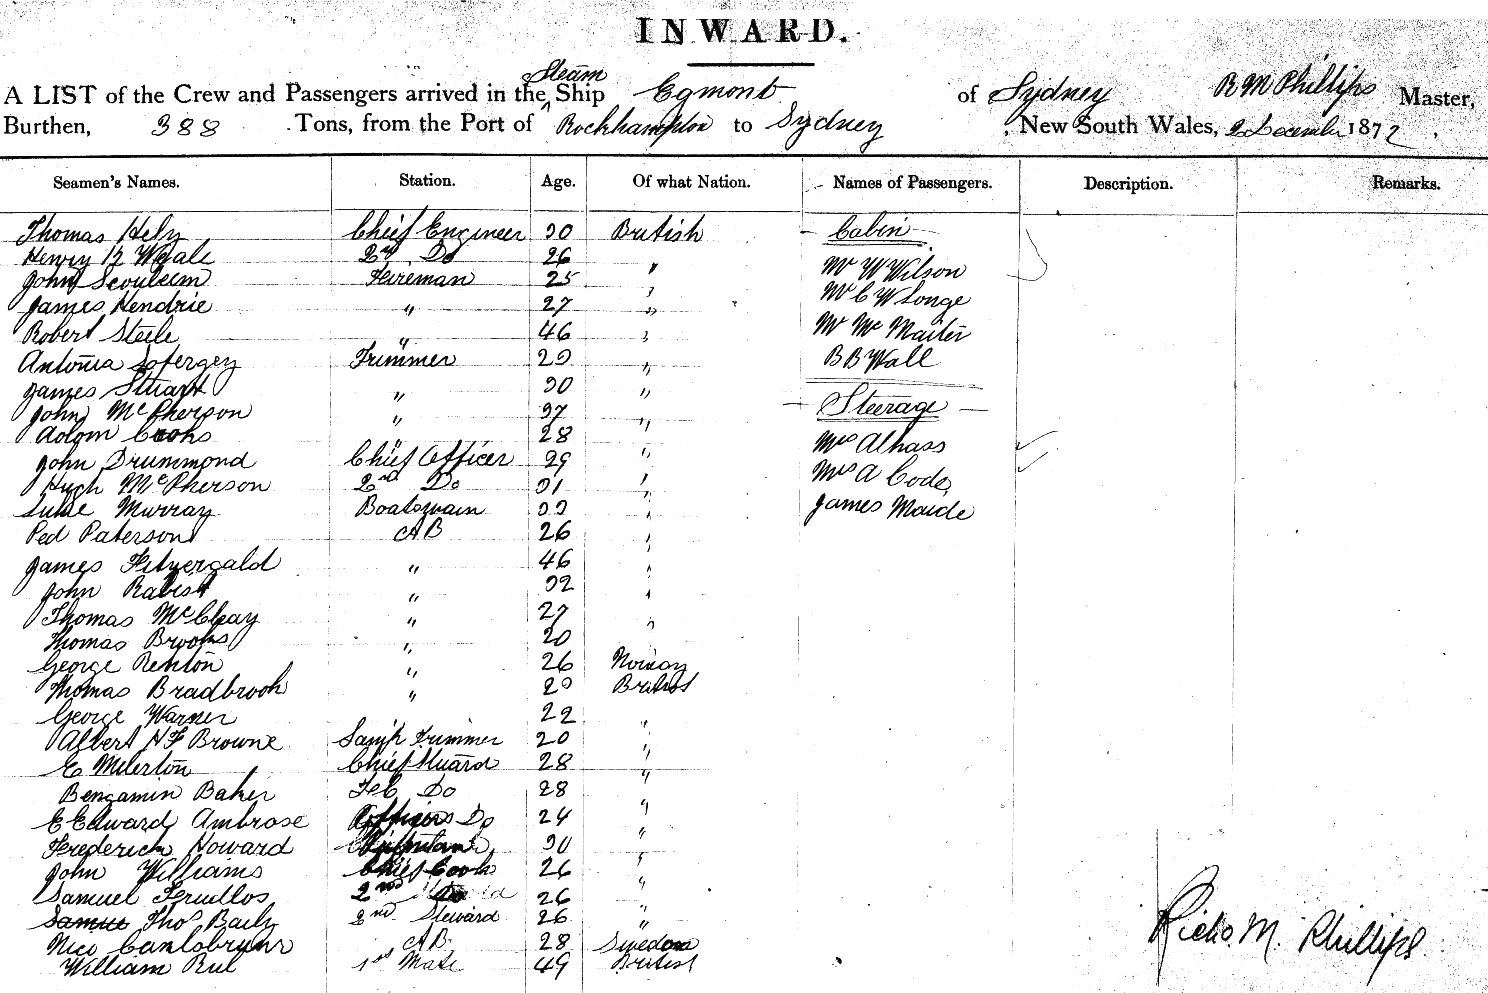 INWARD.
Steam
A LIST of the Crew and Passengers arrived in the Ship Egmont of Sydney R M Phillips Master,
Burthen, 388 Tons, from the Port of Rockhampton to Sydney, New South Wales, 2 December 1872.
Seamen's Names. Station. Age. Of what Nation. Names of Passengers. Description. Remarks.
Thomas Hely Chief Engineer 30 British Cabin
Henry 26 "
John Fireman 25 " Mr W Wilson
James Hendrie " 27 " Mr C W Longe
Robert Steele " 46 " Mr Mc
Trimmer " B B Wall
James Stuart " 30 "
John McPherson " 37 " Steerage
Adam " 28 "
John Drummond Chief Officer 29 " Mrs
Hugh McPherson 2nd Do 31 " Mrs A Code
Murray Boatswain 33 " James
Ped Paterson AB 26 "
James Fitzergald " 46 "
John " 32 "
Thomas McCleay " 27 "
Thomas Brooks " 20 "
George Renton " 26 Norway
Thomas Bradbrook " British
George Warner 22 "
Albert H F Browne Trimmer 20 "
E Chief 28 "
Benjamin Baker Do 28 "
E Edward Ambrose Officers Do 24 "
Frederick Howard 30 "
John Williams Chief Cook 26 "
Samuel 2nd 26 "
Samue Thos Baily 2nd Steward 26 "
AB 28
William 1st Mate 49 British
Richd. M. Phillips